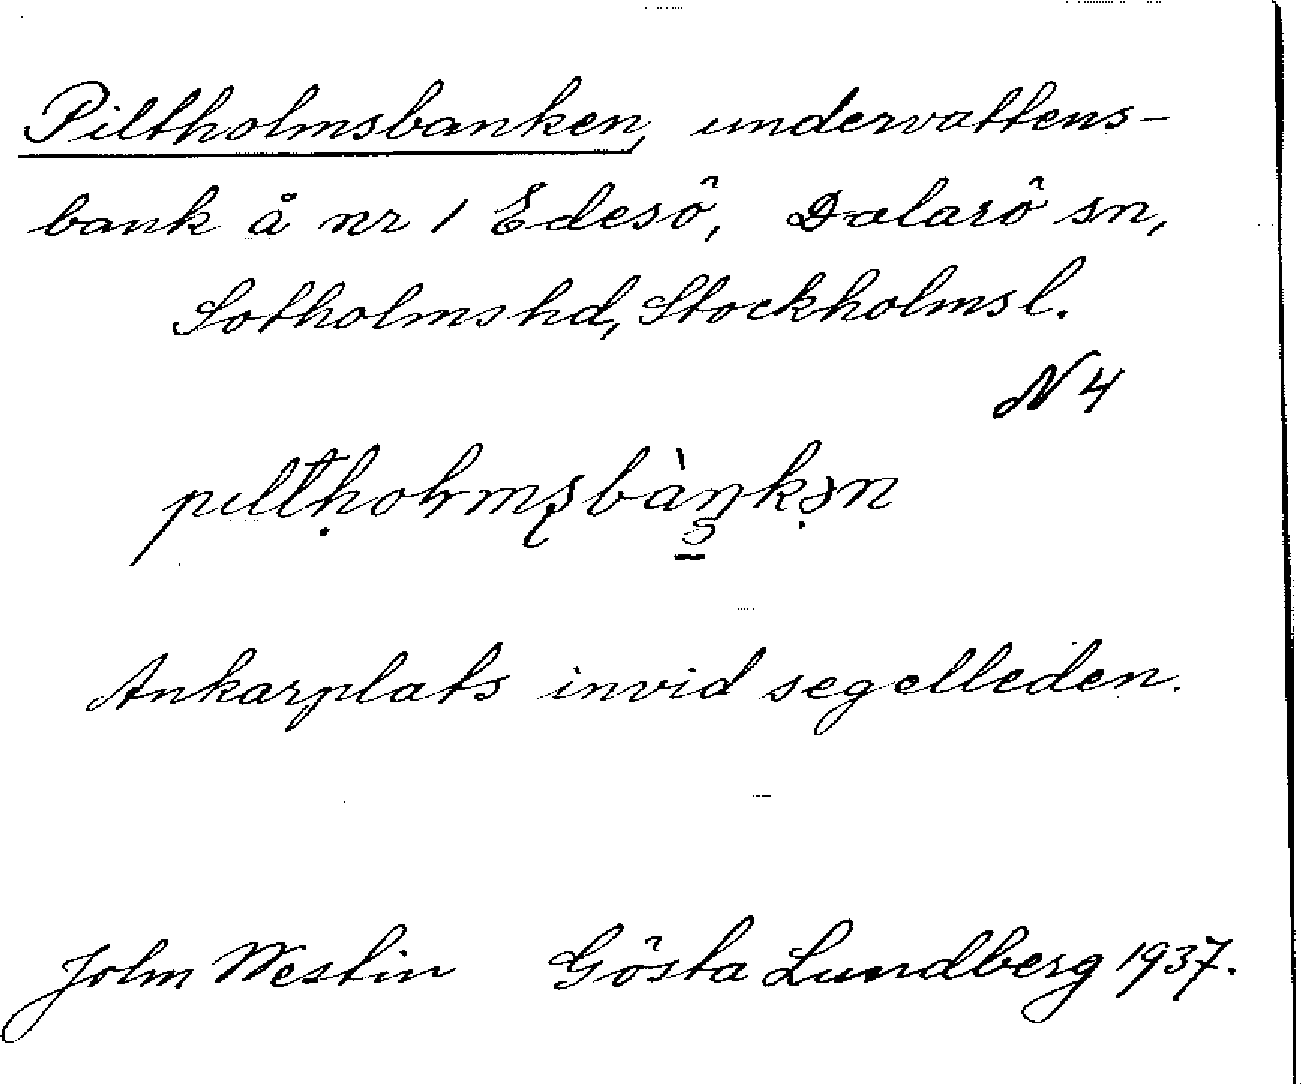 Piltholmsbanken, undervattens-
bank å nr 1 Edesö, Dalarö sn,
Sotholms hd, Stockholms l.
N 4
Ankarplats invid segelleden.
John Westin Gösta Lundberg 1937.